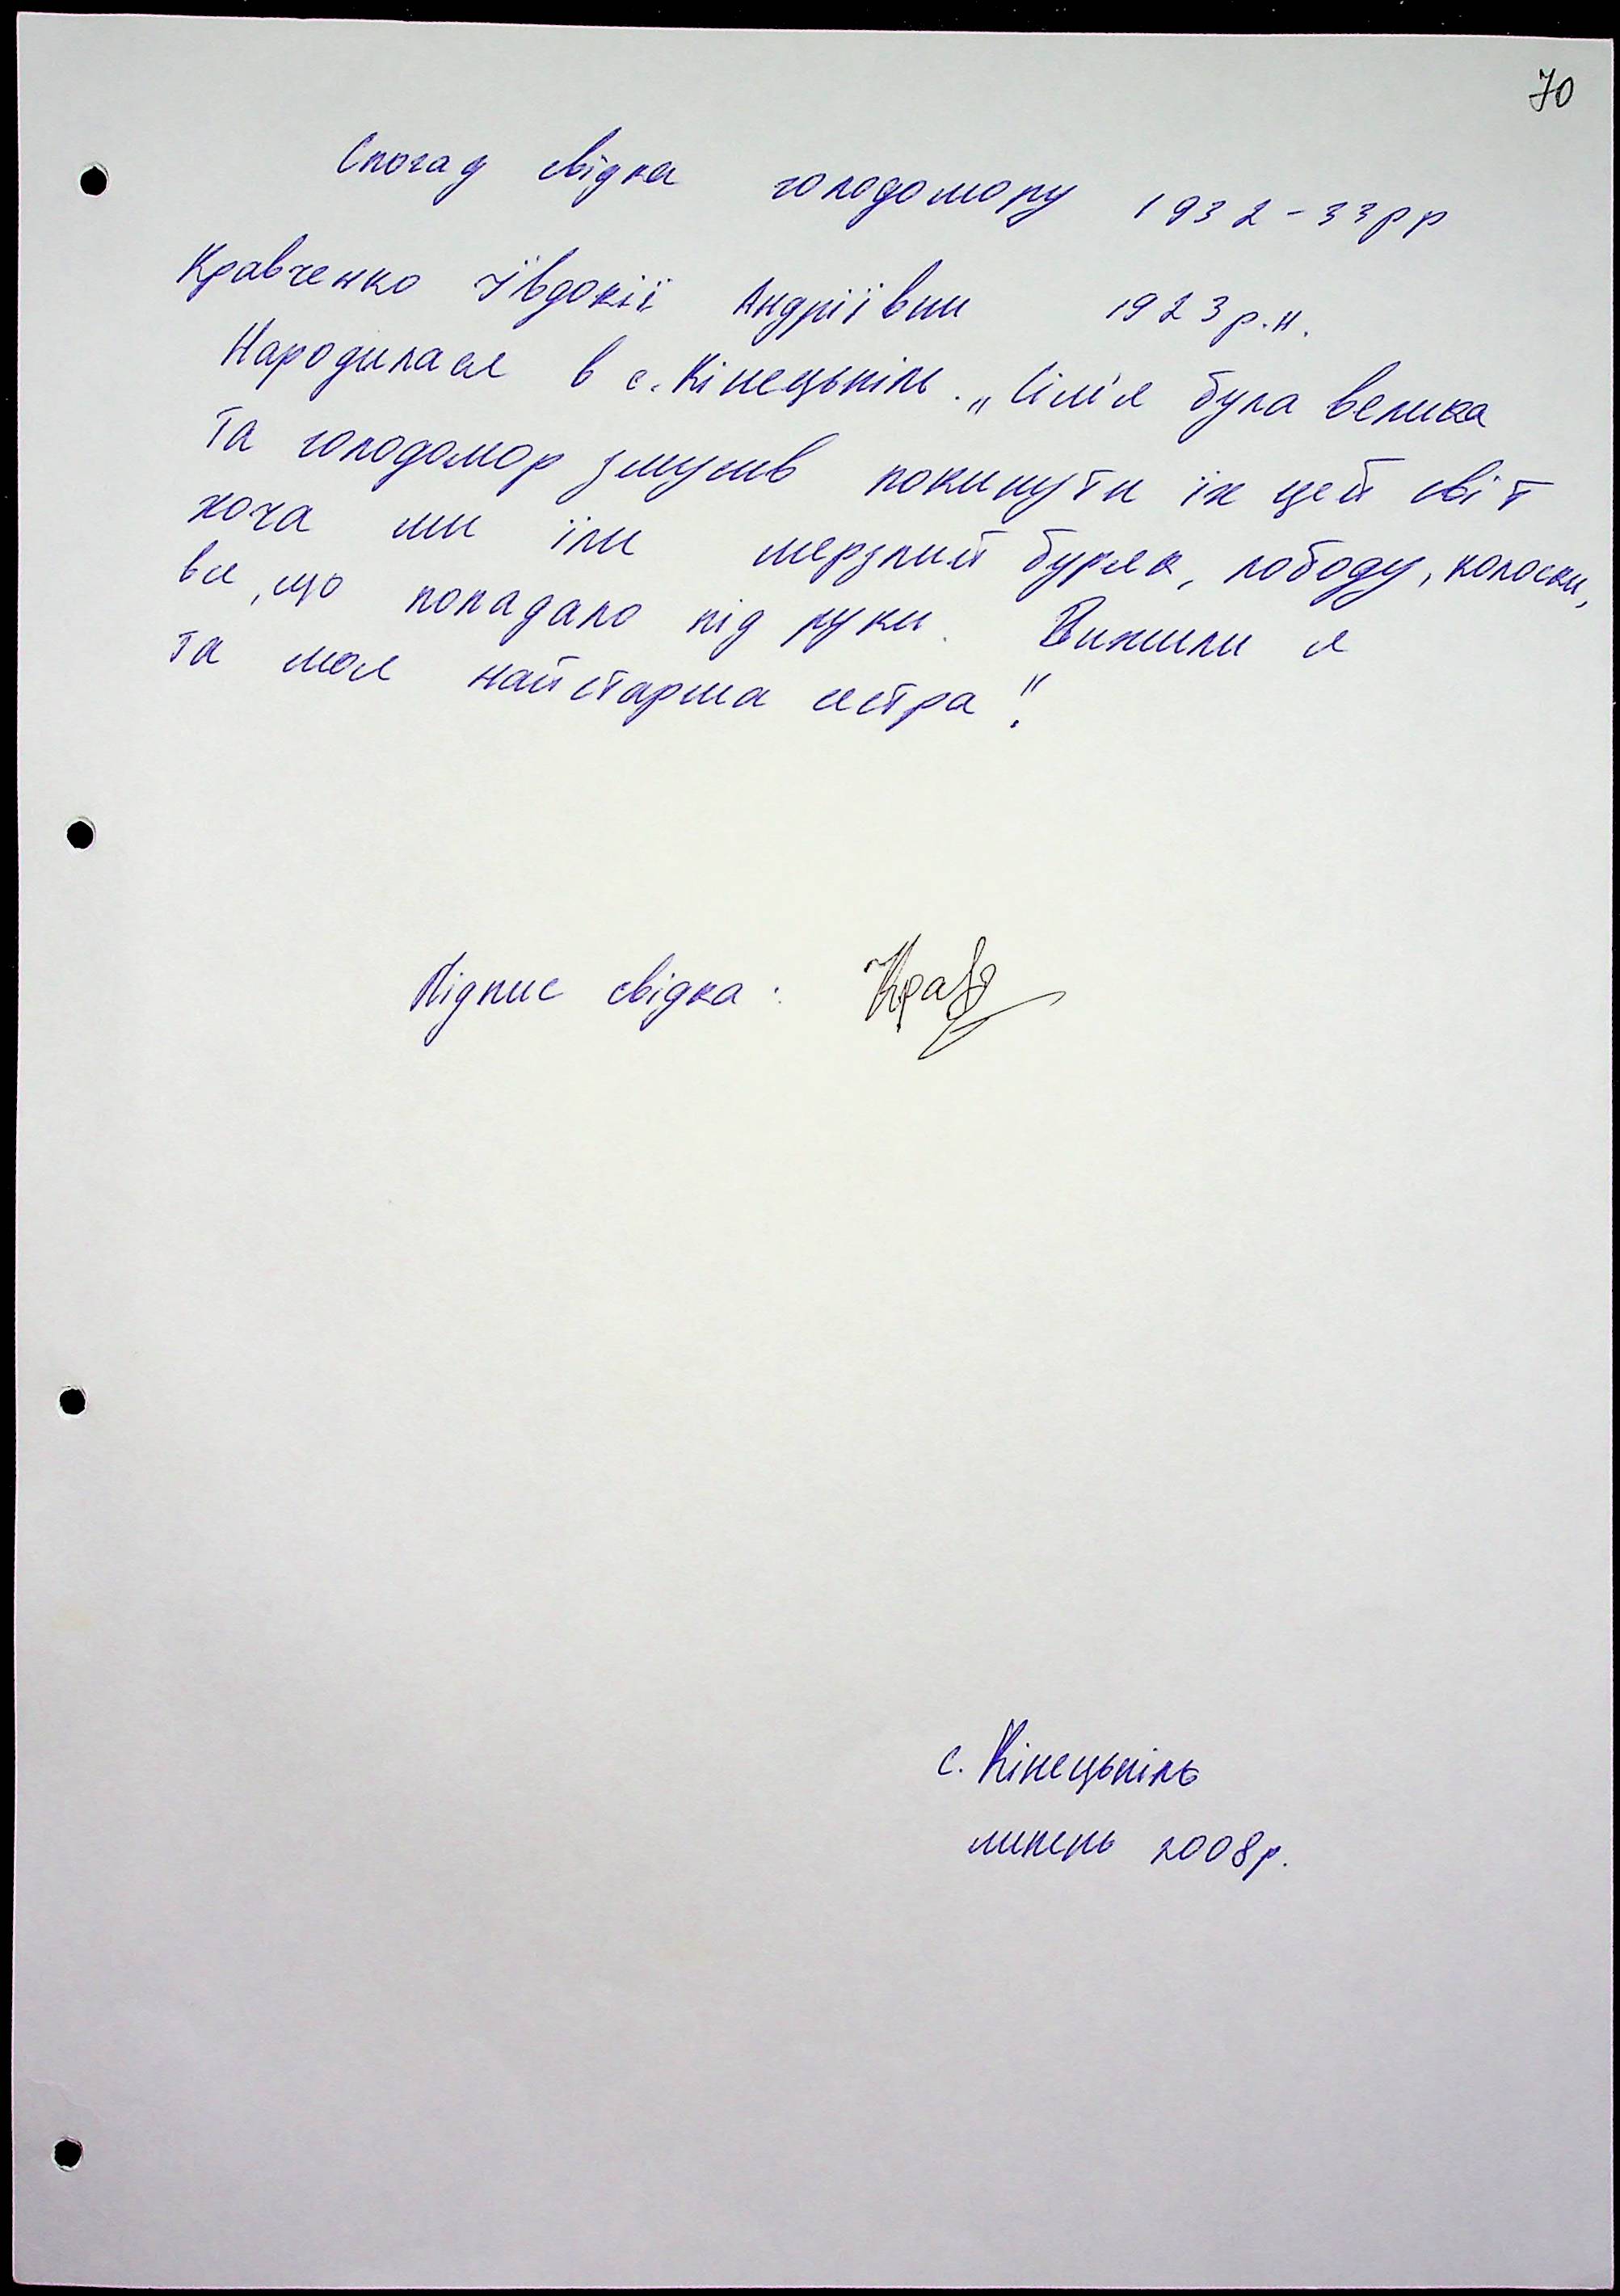 70
Спогад свідка голодомору 1932-33рр
Кравченко Ївдокії Андріївни 1923р.н.
Народилася в с. Кінецьпіль. „Сім'я була велика
та голодомор змусив покинути їх цей світ
хоча ми їли мерзлий буряк, лободу, колоски,
все, що попадало під руки. Вижили я
та моя найстарша сестра!"
Підпис свідка: Крав
с. Кінецьпіль
липень 2008р.